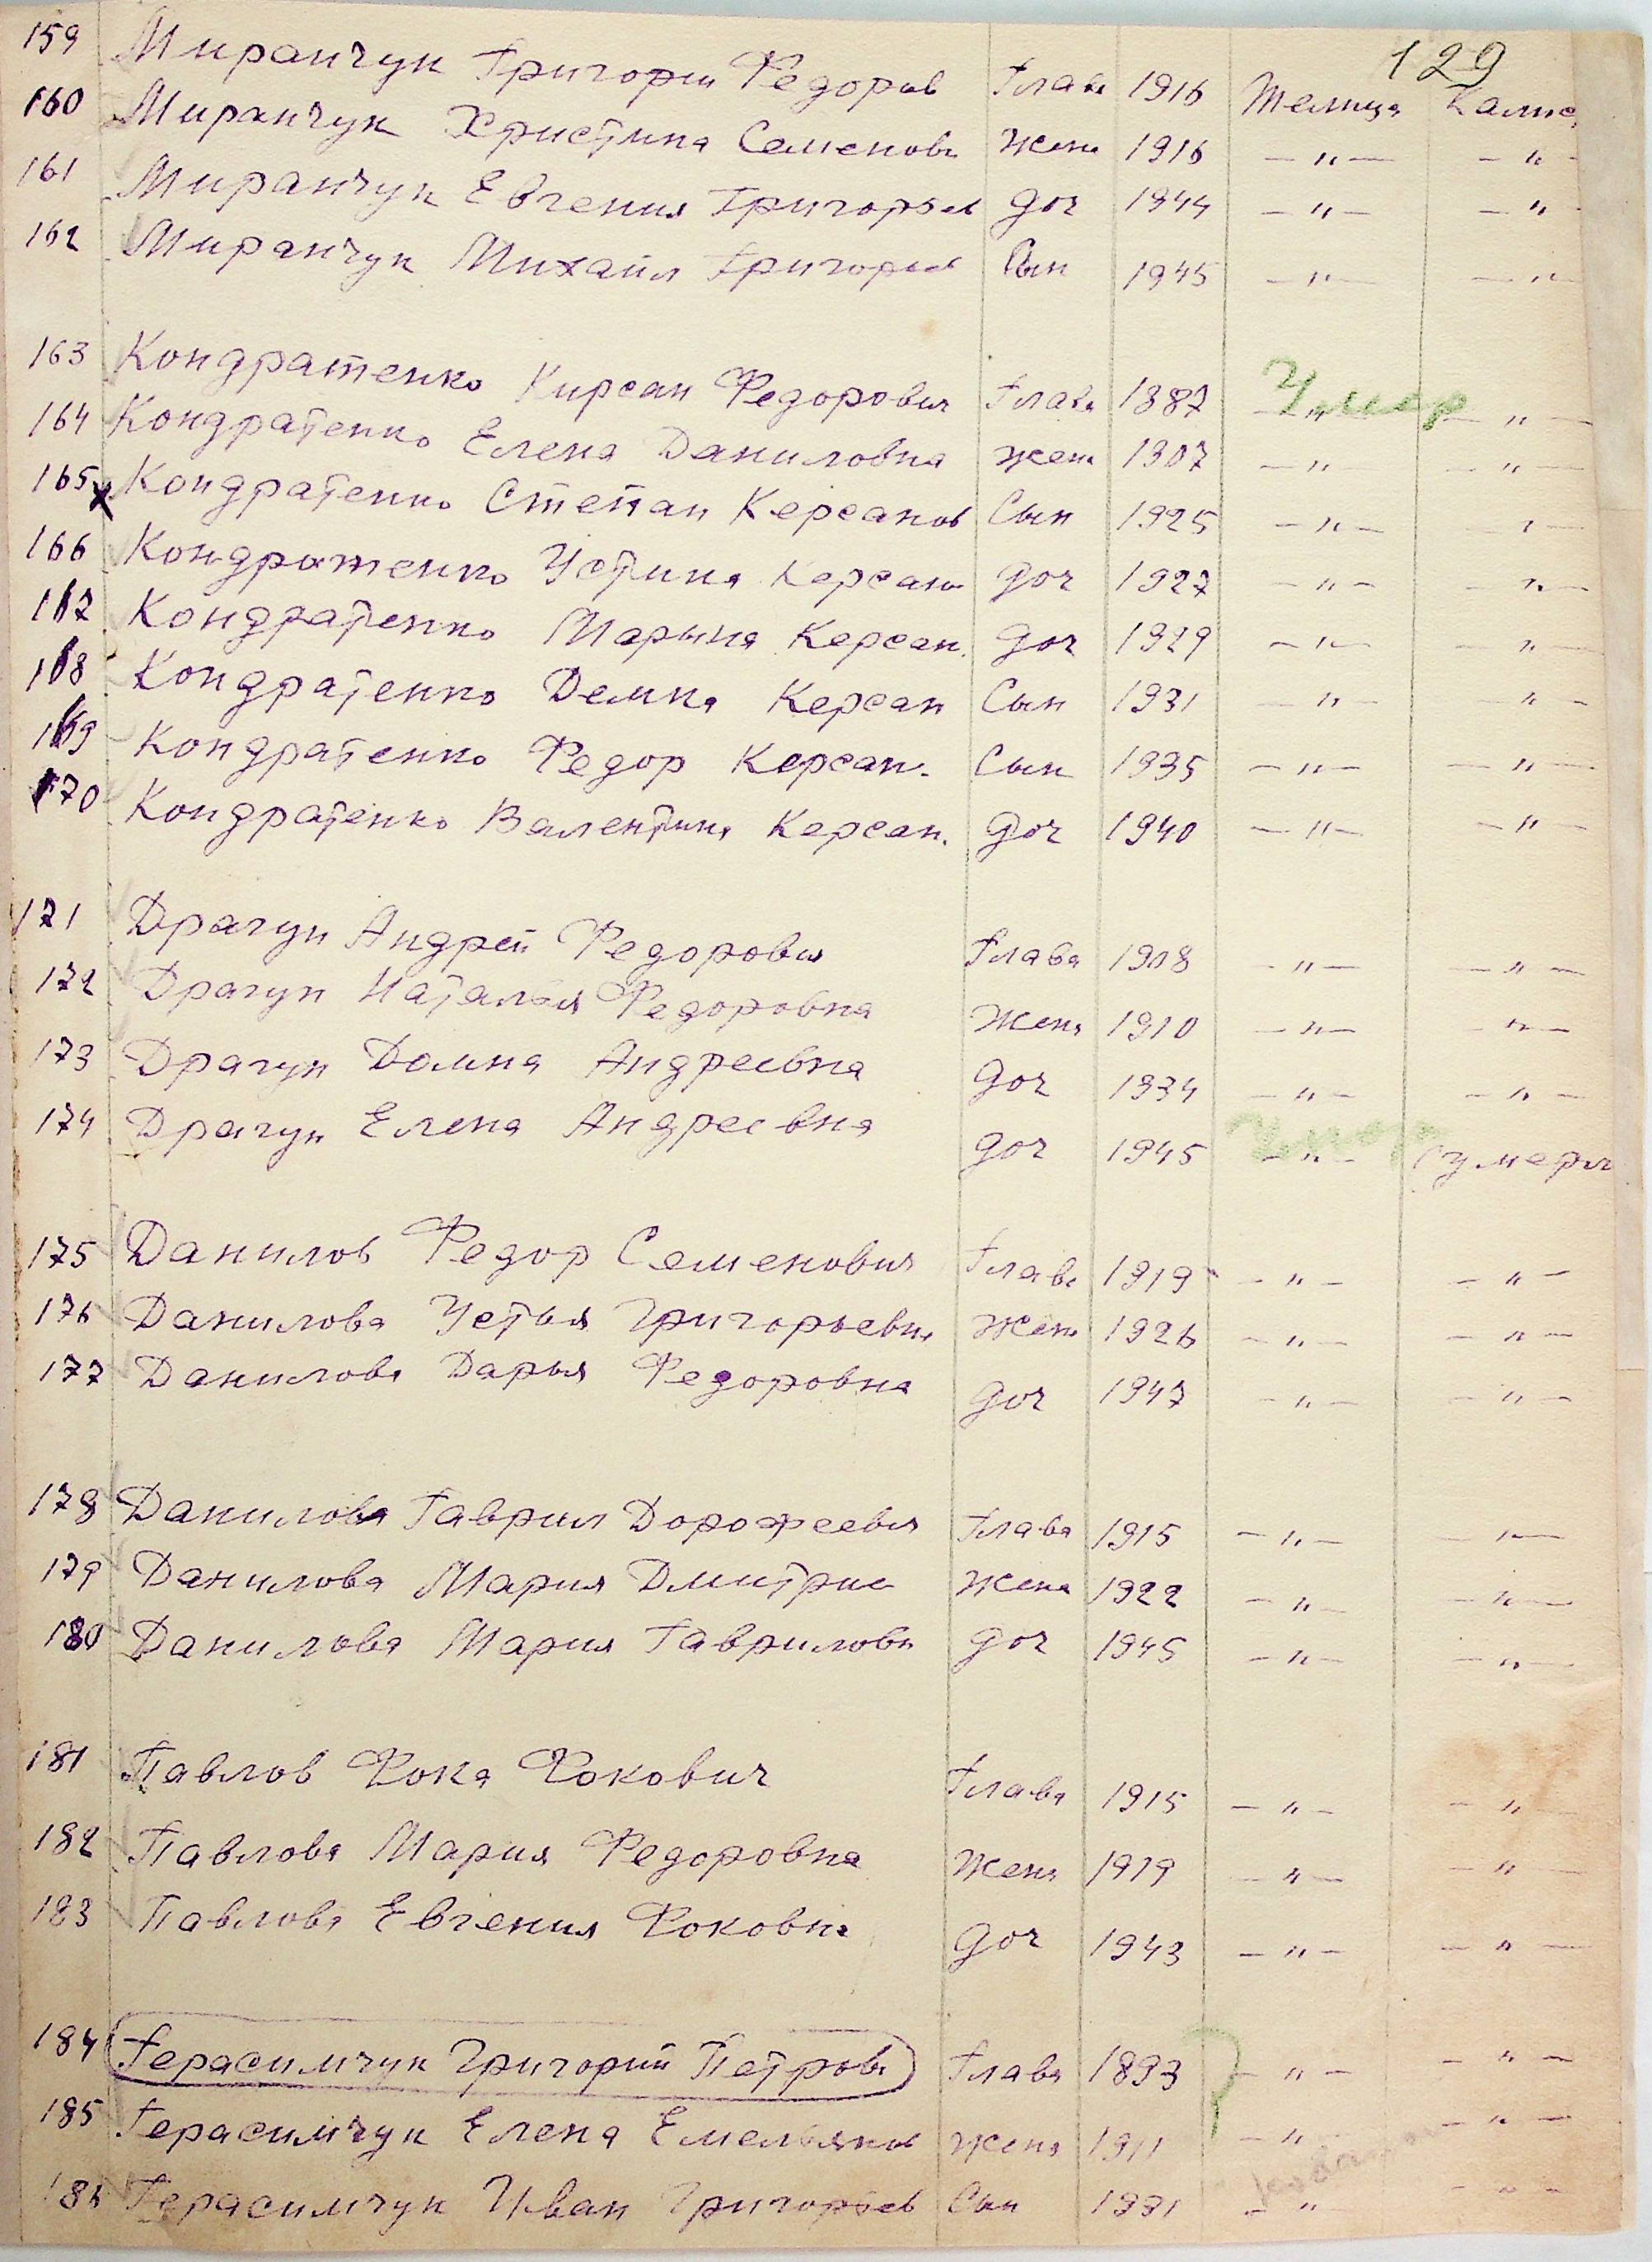 129
159 Миранчук Григорий Федоров Глава 1916 Телица Калис
160 Миранчук Христина Семенов Жена 1916 —"— —"—
161 Миранчук Евгения Григорьев доч 1944 —"— —"
162 Миранчук Михаил Григорьев Сын 1945 —"— —"—
163 Кондратенко Кирсан Федорович Глава 1887 Умер —"— —"—
164 Кондратенко Елена Даниловна жена 1907 —"— —"—
165 х Кондратенко Степан Керсанов Сын 1925 —"— "—
166 Кондратенко Устина Керсан доч 1927 —"— —"—
167 Кондратенко Марына Керсан. доч 1929 —"— —"—
168 Кондратенко Демид Керсан Сын 1931 —"— —"—
169 Кондратенко Федор Керсан. Сын 1935 —"— —"—
170 Кондратенко Валентина Керсан. доч 1940 —"— —"—
171 Драгун Андрей Федорович Глава 1908 —"— —"—
172 Драгун Наталья Федоровна Жена 1910 —"— —"—
173 Драгун Домна Андреевна доч 1934 —"— —"—
174 Драгун Елена Андреевна доч 1945 Умер —"— умерл
175 Данилов Федор Семенович Глава 1919 —"— —"—
176 Данилова Устья Григорьевна Жена 1926 —"— —"—
177 Данилова Дарья Федоровна доч 1947 —"— —"—
178 Данилова Гаврил Дорофеевич Глава 1915 —"— —"—
179 Данилова Мария Дмитрие Жена 1922 —"— —"—
180 Данилова Мария Гаврилов доч 1945 —"— —"—
181 Павлов Фока Фокович Глава 1915 —"— —"—
182 Павлова Мария Федоровна Жена 1919 —"— —"—
183 Павлова Евгения Фоковна доч 1943 —"— —"—
184 Герасимчук Григорий Петров Глава 1893 —"— —"—
185 Герасимчук Елена Емельянов Жена 1911 —"— —"—
186 Герасимчук Иван Григорьев Сын 1931 —"— —"—